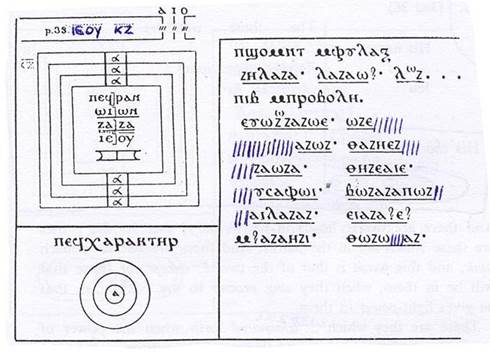 ⲁ ⲓ ⲟ
p.35. ⲓⲉⲟⲩ ⲕⲍ
ⲕⲍ
ⲁ
ⲁ
ⲁ
ⲡⲉϥⲣⲁⲛ
ⲱⲓ ⲱⲏ
ⲍⲁ ⲍⲁ
ⲓⲉ ⲟⲩ
ⲁ
ⲁ
ⲁ
ⲡⲉϥⲭⲁⲣⲁⲕⲧⲏⲣ
ⲁ
ⲡϣⲟⲙⲛⲧ ⲙⲫⲩⲗⲁⲝ
ⲍⲏⲗⲁⲍⲁ· ⲗⲁⲍⲁⲱ?· ⲗⲱⲍ...
ⲡⲓⲃ ⲙⲡⲣⲟⲃⲟⲗⲏ.
ⲉⲩⲱⲍⲱⲍⲁⲍⲱⲉ· ⲱⲍⲉ
ⲁⲍⲱⲍ· ⲑⲁⲍⲏⲉⲍ
ⲍⲁⲱⲍⲁ· ⲑⲏⲍⲉⲁⲓⲉ·
ⲩⲉⲁⲫⲱⲓ· ⲃⲱⲍⲁⲍⲁⲡⲱⲍ
ⲁⲓⲗⲁⲍⲁⲍ· ⲉⲓⲁⲍⲁ?ⲉ?
ⲙ?ⲁⲍⲁⲏⲍⲓ· ⲑⲱⲍⲱ ⲁⲍ·